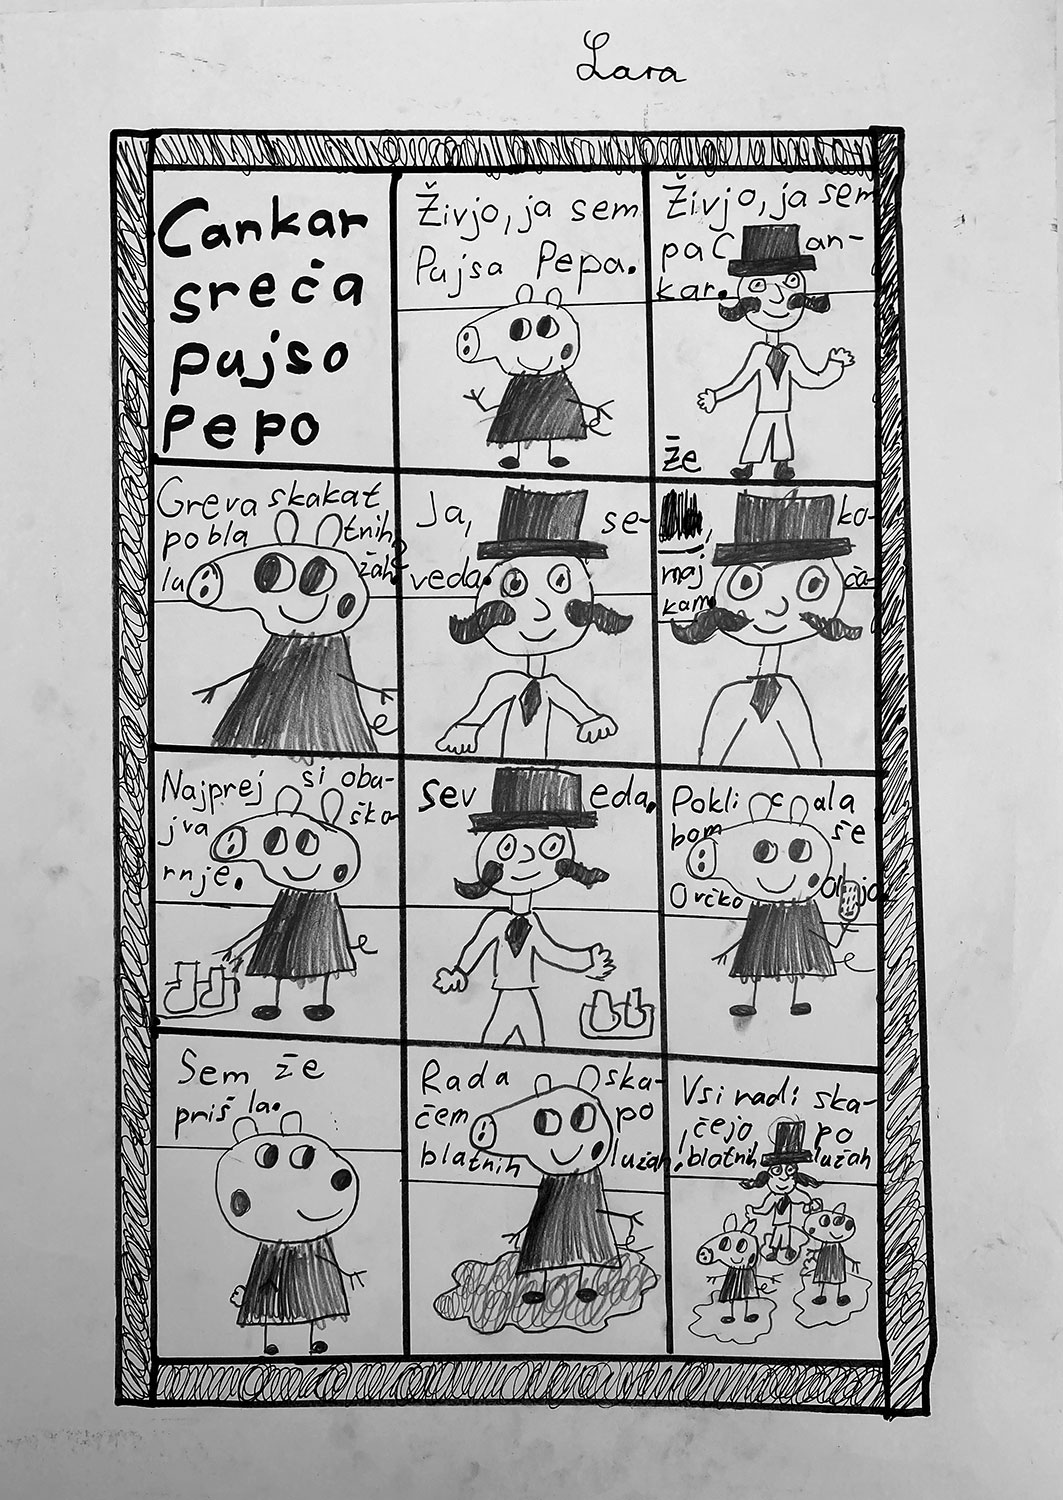 Lara
Cankar
sreča
pujso
Pepo
Živjo, ja sem
Pujsa Pepa.
Živjo, ja sem
pa Can-
kar.
že
Greva skakat
po blatnih
lužah?
Ja, se-
veda.
ko-
maj ča-
kam.
Najprej si obu-
jva ško-
rnje.
Seveda.
Poklicala
bom še
Ovčko
Sem že
prišla.
Rada ska-
čem po
blatnih lužah!
Vsi radi ska-
čejo po
blatnih lužah